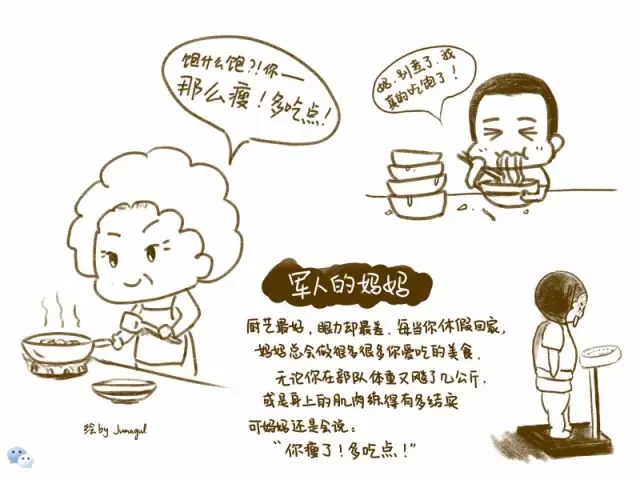 饱什么饱?!你——
那么瘦！多吃点！
妈,别煮了,我
真的吃饱了！
军人的妈妈
厨艺最好,眼力却最差.每当你休假回家,
妈妈总会做很多很多你爱吃的美食.
无论你在部队体重又飚了几公斤,
或是身上的肌肉练得有多结实
可妈妈还是会说:
“你瘦了！多吃点！”
绘by Jumagul